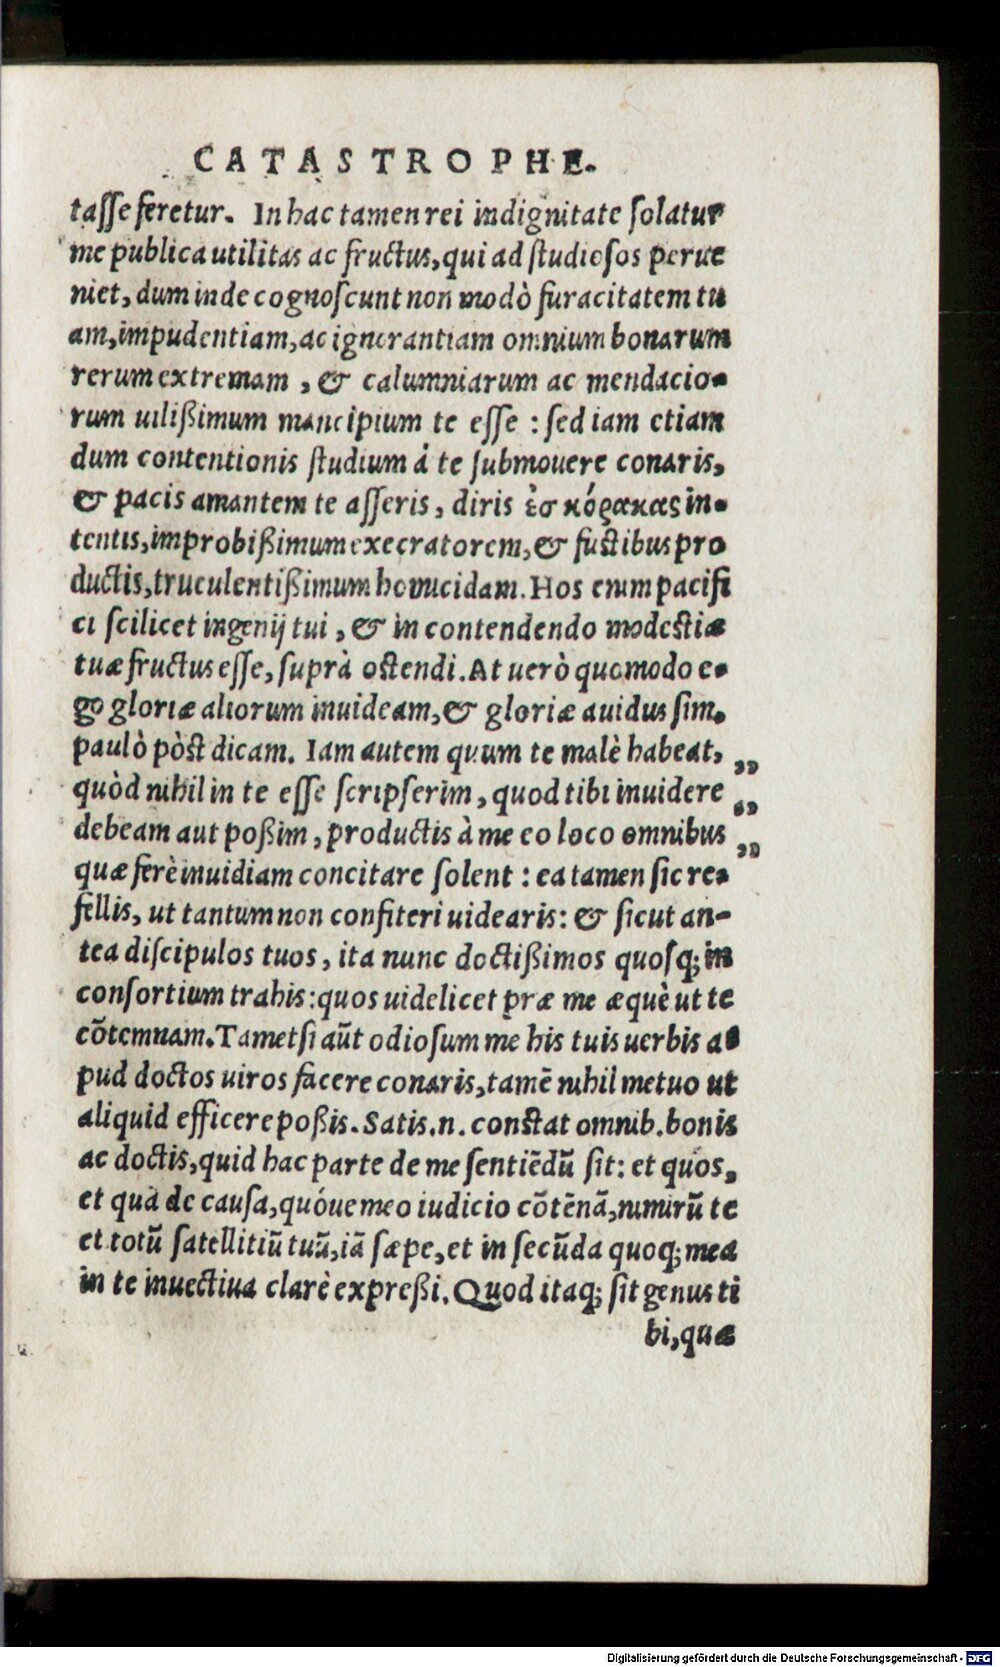 CATASTROPHE.
tasse feretur. In hac tamen rei indignitate solatur
me publica utilitas ac fructus, qui ad studiosos perue
niet, dum inde cognoscunt non modò furacitatem tu
am, impudentiam, ac ignorantiam omnium bonarum
rerum extremam, & calumniarum ac mendacio-
rum uilißimum mancipium te esse: sed iam etiam
dum contentionis studium à te submouere conaris,
& pacis amantem te asseris, diris ἐσ κόρακας in-
tentis, improbißimum execratorem, & fustibus pro
ductis, truculentißimum homicidam. Hos enim pacifi
ci scilicet ingenij tui, & in contendendo modestiæ
tuæ fructus esse, suprà ostendi. At uerò quomodo e-
go gloriæ aliorum inuideam, & gloriæ auidus sim,
paulò pòst dicam. Iam autem quum te malè habeat, „
quòd nihil in te esse scripserim, quod tibi inuidere „
debeam aut poßim, productis à me eo loco omnibus „
quæ ferè inuidiam concitare solent: ea tamen sic re-
fellis, ut tantum non confiteri uidearis: & sicut an-
tea discipulos tuos, ita nunc doctißimos quosq; in
consortium trahis: quos uidelicet præ me æquè ut te
cõtemnam. Tametsi aũt odiosum me his tuis uerbis a-
pud doctos uiros facere conaris, tamẽ nihil metuo ut
aliquid efficere poßis. Satis.n. constat omnib. bonis
ac doctis, quid hac parte de me sentiẽdũ sit: et quos,
et qua de causa, quóue meo iudicio cõtẽnã, nimirũ te
et totũ satellitiũ tuũ, iã sæpe, et in secũda quoq; mea
in te inuectiua clarè expreßi. Quod itaq; sit genus ti
bi, quæ
Digitalisierung gefördert durch die Deutsche Forschungsgemeinschaft - DFG